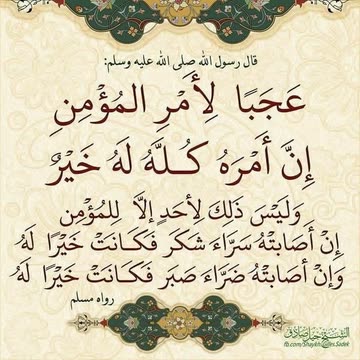 قال رسول الله صلى الله عليه وسلم:
عَجَبًا لِأَمْرِ المُؤْمِنِ
إِنَّ أَمْرَهُ كُلَّهُ لَهُ خَيْرٌ
وَلَيْسَ ذَلِكَ لِأَحَدٍ إِلَّا لِلْمُؤْمِنِ
إِنْ أَصَابَتْهُ سَرَّاءَ شَكَرَ فَكَانَتْ خَيْرًا لَهُ
وَإِنْ أَصَابَتْهُ ضَرَّاءَ صَبَرَ فَكَانَتْ خَيْرًا لَهُ
رواه مسلم